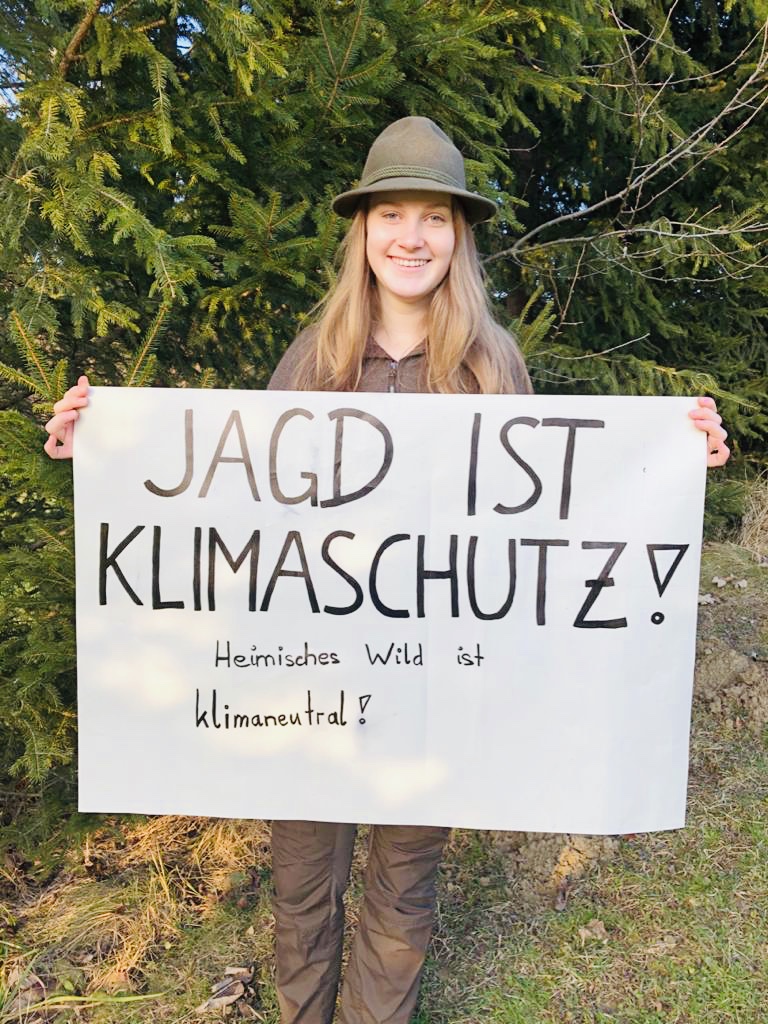 JAGD IST
KLIMASCHUTZ!
Heimisches Wild ist
klimaneutral!